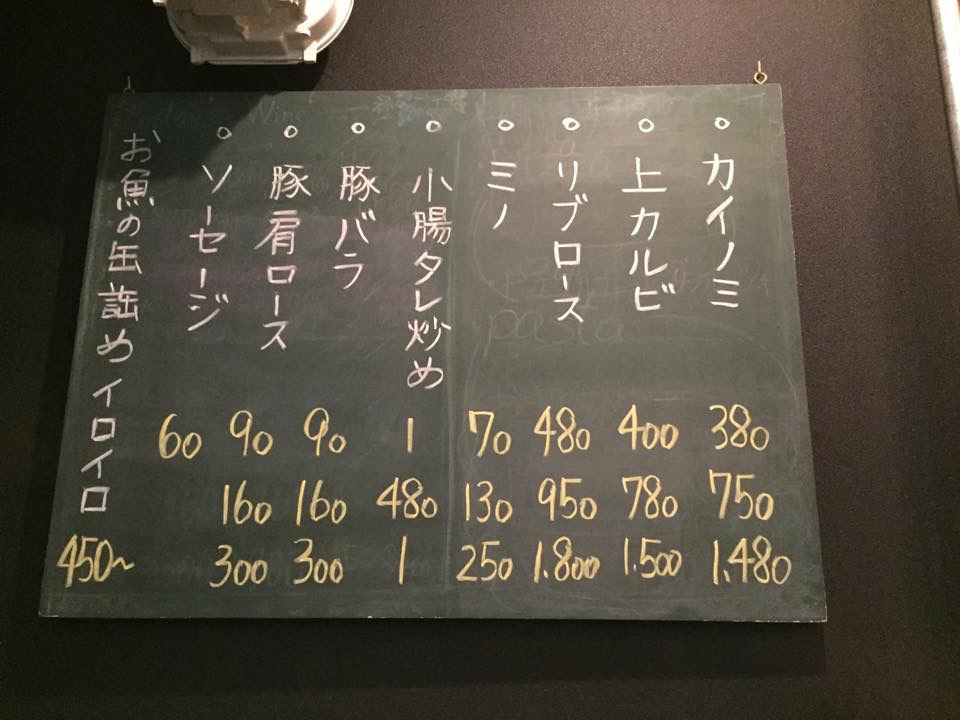 カイノミ 380 750 1.480
上カルビ 400 780 1.500
リブロース 480 950 1.800
ミノ 70 130 250
小腸タレ炒め 1 480 1
豚バラ 90 160 300
豚肩ロース 90 160 300
ソーセージ 60
お魚の缶詰めイロイロ 450~
pasta